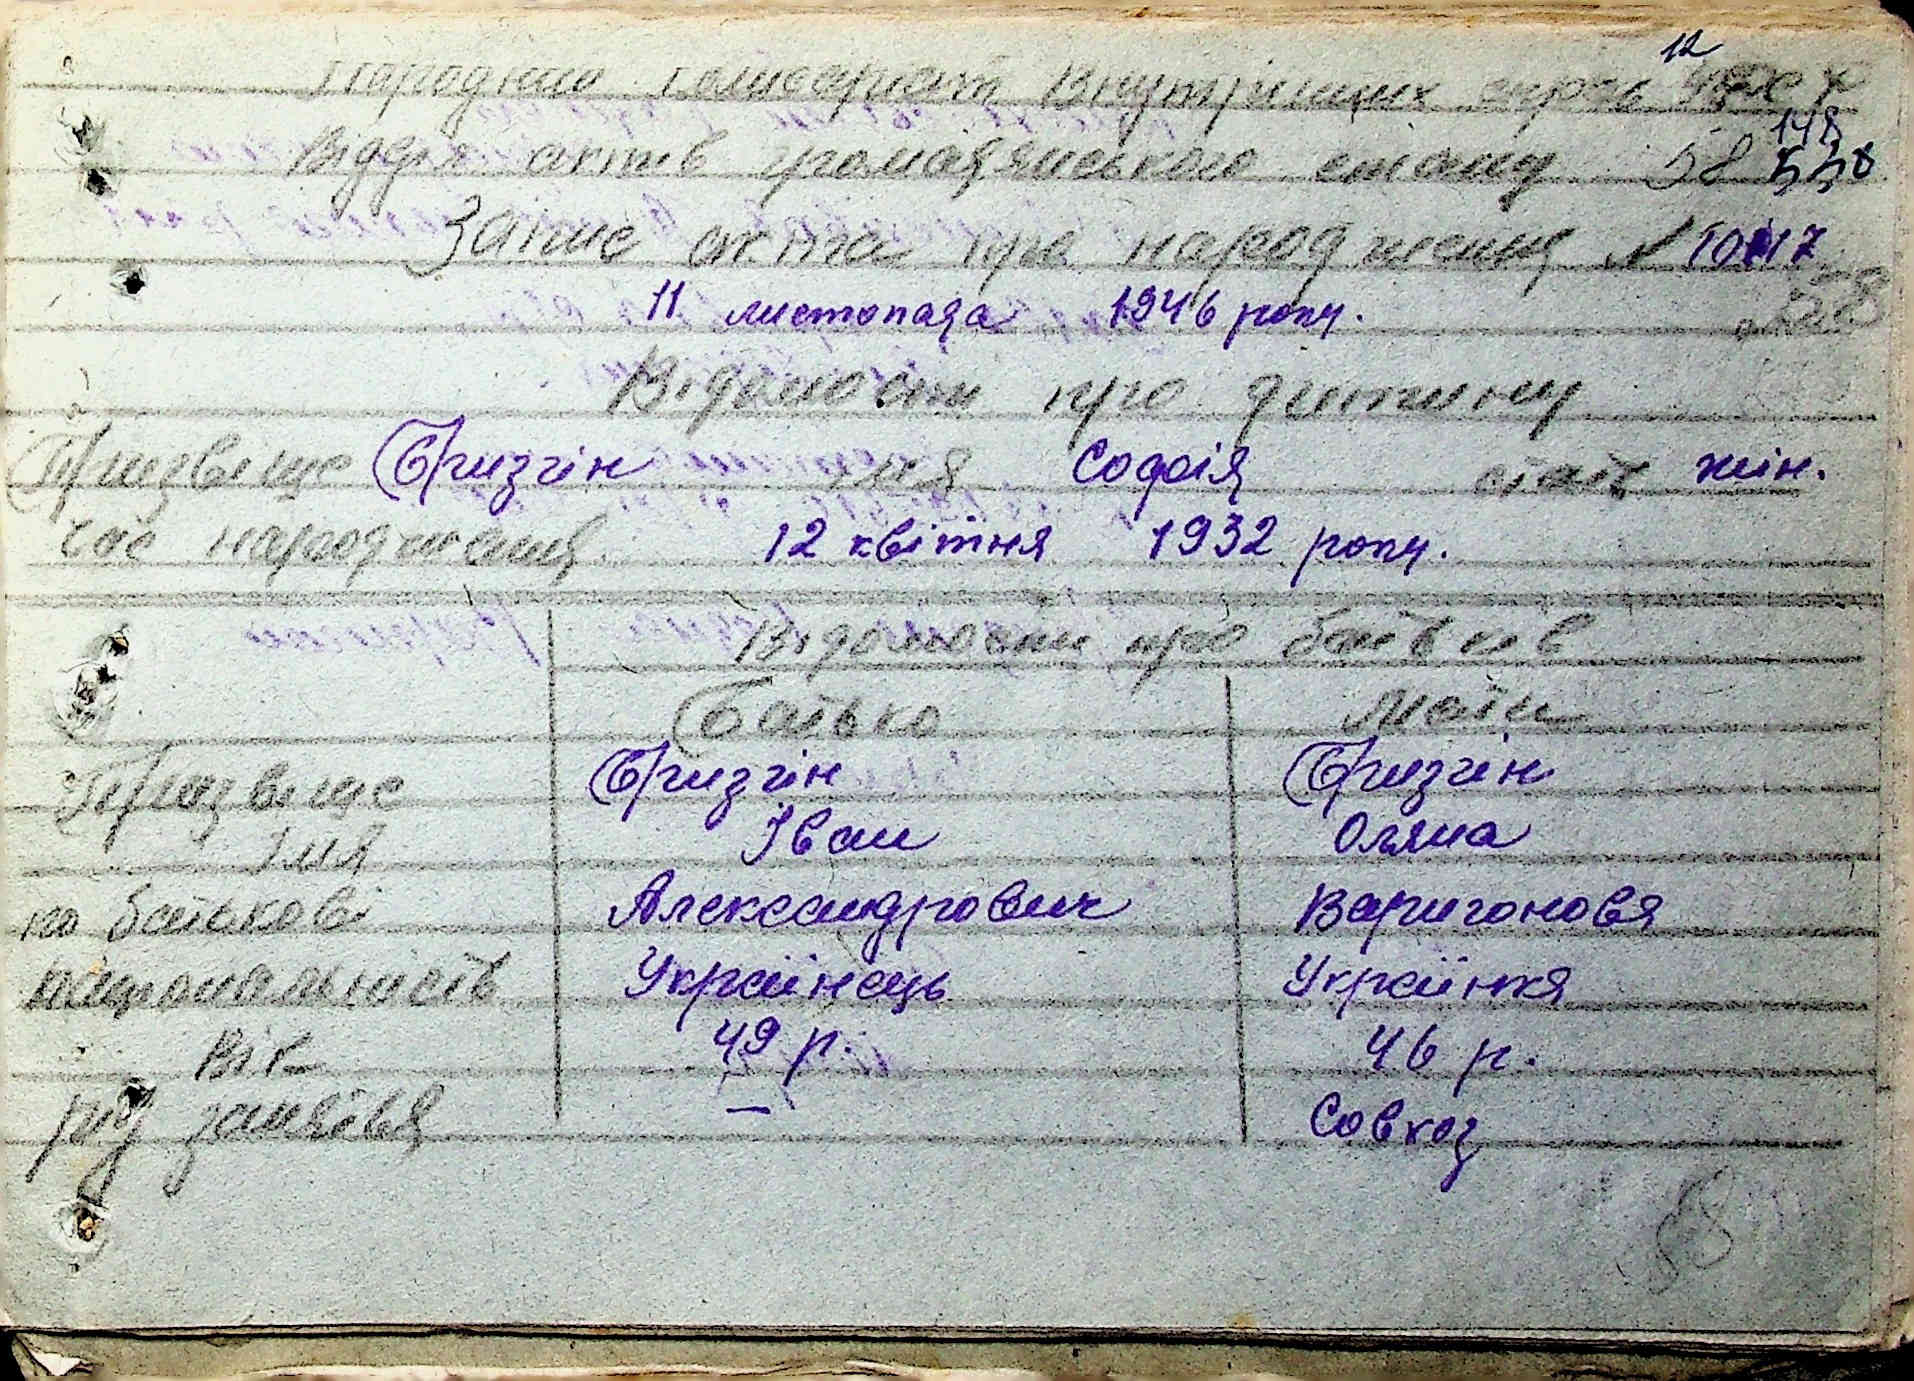 12
Народний Комісаріят Внутрішніх справ УРСР
148
Відділ актів громадянського стану 58 558
Запис акта про народження № 1017
58
11 листопада 1946 року.
Відомости про дитину
Призвище Бризгін імя Софія стать жін.
час народження 12 квітня 1932 року.
Відомости про батьків
Батько Мати
Призвище Бризгін Бризгін
Імя Іван Оляна
по батькові Александрович Варигоновя
національність Українець Українкя
Вік 49 р. 46 р.
рід заняття — Совхоз
58